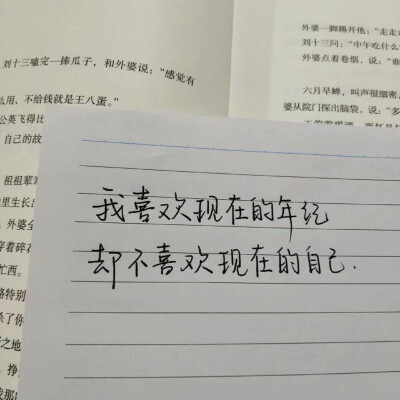 刘十三嗑完一捧瓜子，和外婆说：“感觉有
么用，不给钱就是王八蛋。”
公英飞得比
自己的故
祖祖辈
里生长出
，外婆全
穿着碎花
忙西。
格特别
杀了你
之地
外婆一脚踢开他：“走走
刘十三问：“中午吃什么
外婆点着卷烟，说：“谁
六月早蝉，叫声很细密，
婆从院门探出脑袋，说：“多
我喜欢现在的年纪
却不喜欢现在的自己.